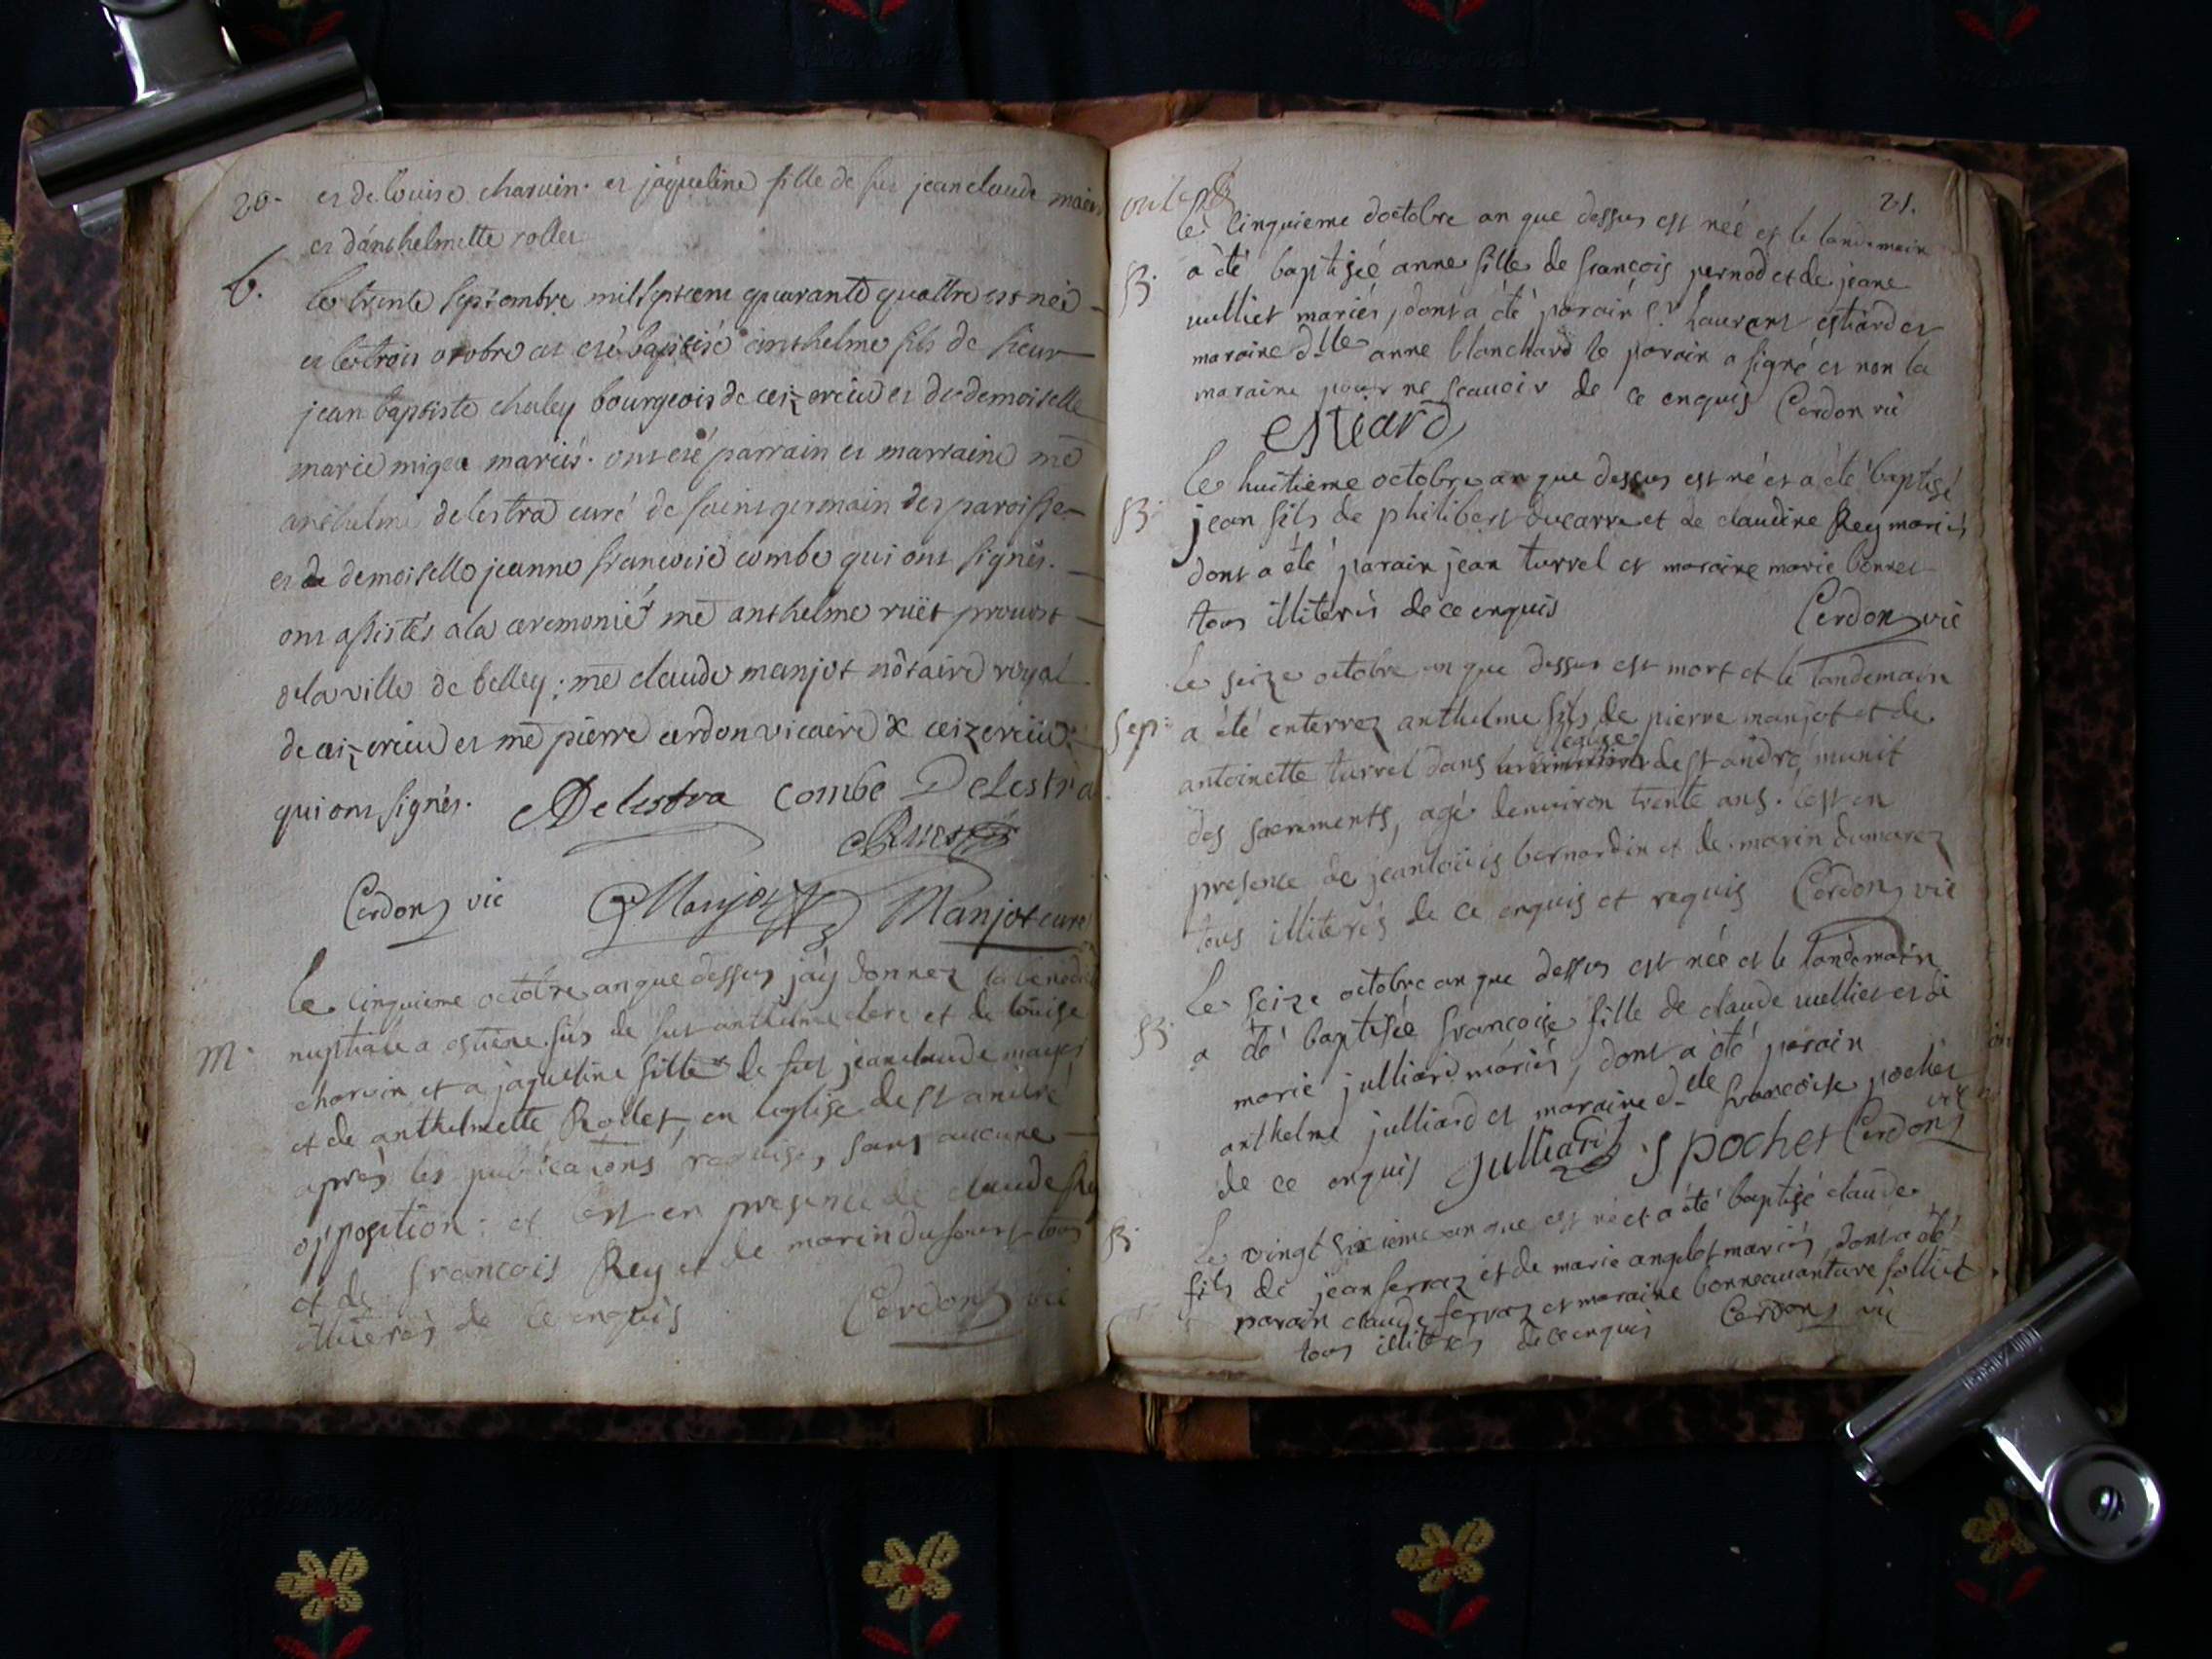 20.
et de louise charvin. et jaqueline fille de fut jean claude
et d'anthelmette rollet
b.
le trente septembre mil sept cent quarante quattre est néé
et le trois octobre at eté baptisé anthelme fils de sieur
jean baptiste chaley bourgeois de ceizerieu et de demoiselle
marie migea mariés. ont eté parrain et marraine me
anthelme delestra curé de saint germain des paroisse
et demoiselle jeanne francoise combe qui ont signés.
ont assistés a la ceremonie me anthelme ruët prouost
de la ville de belley; me claude manjot nôtaire royal
de ceizerieu et me pierre cerdon vicaire de ceizerieu
qui ont signés. Delestra combe Delestra
Cerdon vic Manjot Manjot curé
le cinquieme octobre an que dessus j'ay donnez la
M.
nuptiale a estiene fils de fut anthelme clerc et de louise
charvin et a jaqueline fille de fut jean claude
et de anthelmette Rollet, en l'eglise de st andré
aprés les publications requises, sans aucune
opposition: et c'est en presence de claude Rey
et de francois Rey et de marin dufourt tous
illiterés de ce enquis Cerdon vic
21.
le cinquieme d'octobre an que dessus est néé et le landemain
B.
a été baptiséé anne fille de francois pernod et de jeane
vulliet mariés, dont a été parain Sr laurent estiard et
maraine dlle anne blanchard le parain a signé et non la
maraine pour ne scauoir de ce enquis Cerdon vic
estiard
Le huitieme octobre an que dessus est né et a été baptisé
B.
jean fils de philibert ducarre et de claudine Rey mariés
dont a été parain jean turrel et maraine marie bonnet
tous illiterés de ce enquis Cerdon vic
Le seize octobre an que dessus est mort et le landemain
Sep:
a été enterrez anthelme fils de pierre manjot et de
antoinette turrel dans l'eglise de st andré, munit
des sacrements, agé denviron trente ans. c'est en
presence de jean loüis bernardin et de marin dumarez
tous illiterés de ce enquis et requis Cerdon vic
Le seize octobre an que dessus est néé et le landemain
B.
a été baptisée francoise fille de claude vulliet et de
marie julliard mariés, dont a été parain
anthelme julliard et maraine dlle francoise pochet
de ce enquis Julliard f pochet Cerdon vic
B.
Le vingt sixieme an que est né et a été baptisé claude
fils de jean ferraz et de marie angelot mariés dont a été
parain claude ferraz et maraine bonneauanture folliet
tous illiterés de ce enquis Cerdon vic